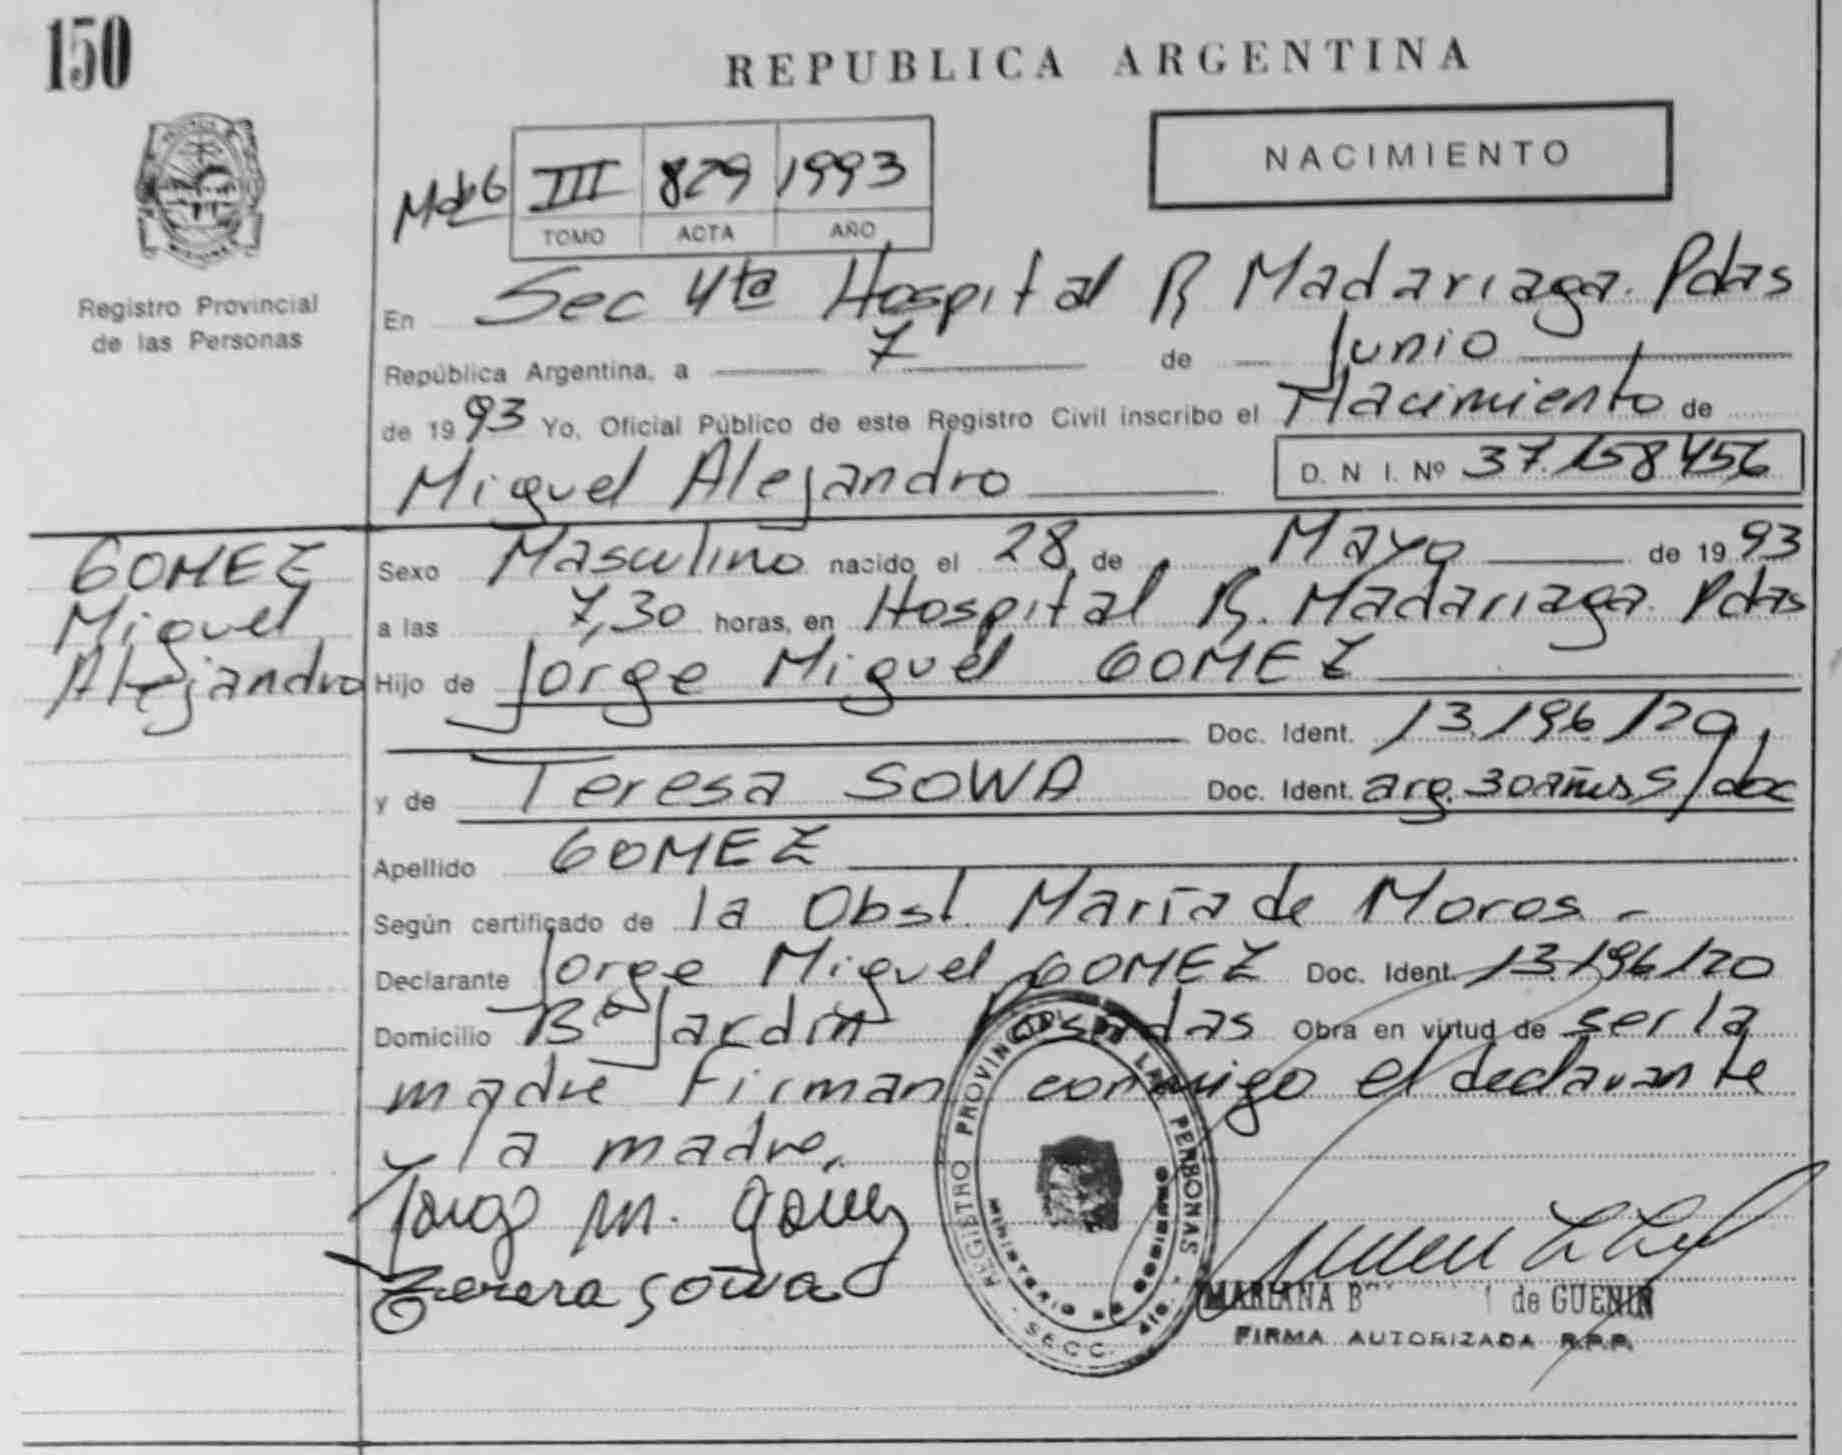 150
REPUBLICA ARGENTINA
NACIMIENTO
III 829 1993
TOMO ACTA AÑO
Registro Provincial
de las Personas
En Sec 4ta Hospital R Madariaga. Pdas
República Argentina, a 7 de Junio
de 1993 Yo, Oficial Público de este Registro Civil inscribo el Nacimiento de
Miguel Alejandro D. N I. Nº 37.158456
GOMEZ
Miguel
Alejandro
Sexo Masculino nacido el 28 de Mayo de 1993
a las 7,30 horas, en Hospital R. Madariaga. Pdas
Hijo de Jorge Miguel GOMEZ
Doc. Ident. 13.196120
y de Teresa SOWA Doc. Ident. arg. 30 años s/doc
Apellido GOMEZ
Según certificado de la Obst. María de Moros -
Declarante Jorge Miguel GOMEZ Doc. Ident. 13.196120
Domicilio Bº Jardín Posadas Obra en virtud de ser la
madre Firman conmigo el declarante
y la madre.
Jorge M. Gomez
Teresa Sowa
REGISTRO PROVINCIAL DE LAS PERSONAS
MINISTERIO DE GOBIERNO
SECC. 4ta
MARIANA B de GUENIN
FIRMA AUTORIZADA R.P.P.